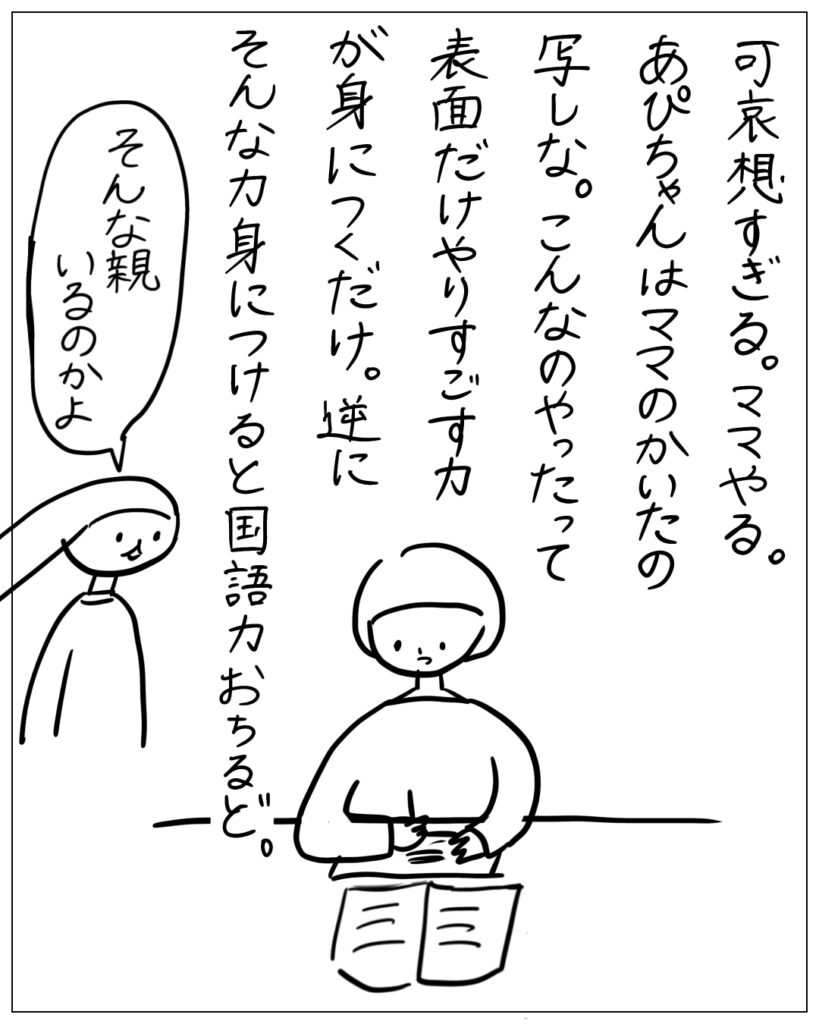 可哀想すぎる。ママやる。
あぴちゃんはママのかいたの
写しな。こんなのやったって
表面だけやりすごす力
が身につくだけ。逆に
そんな力身につけると国語力おちるど。
そんな親
いるのかよ